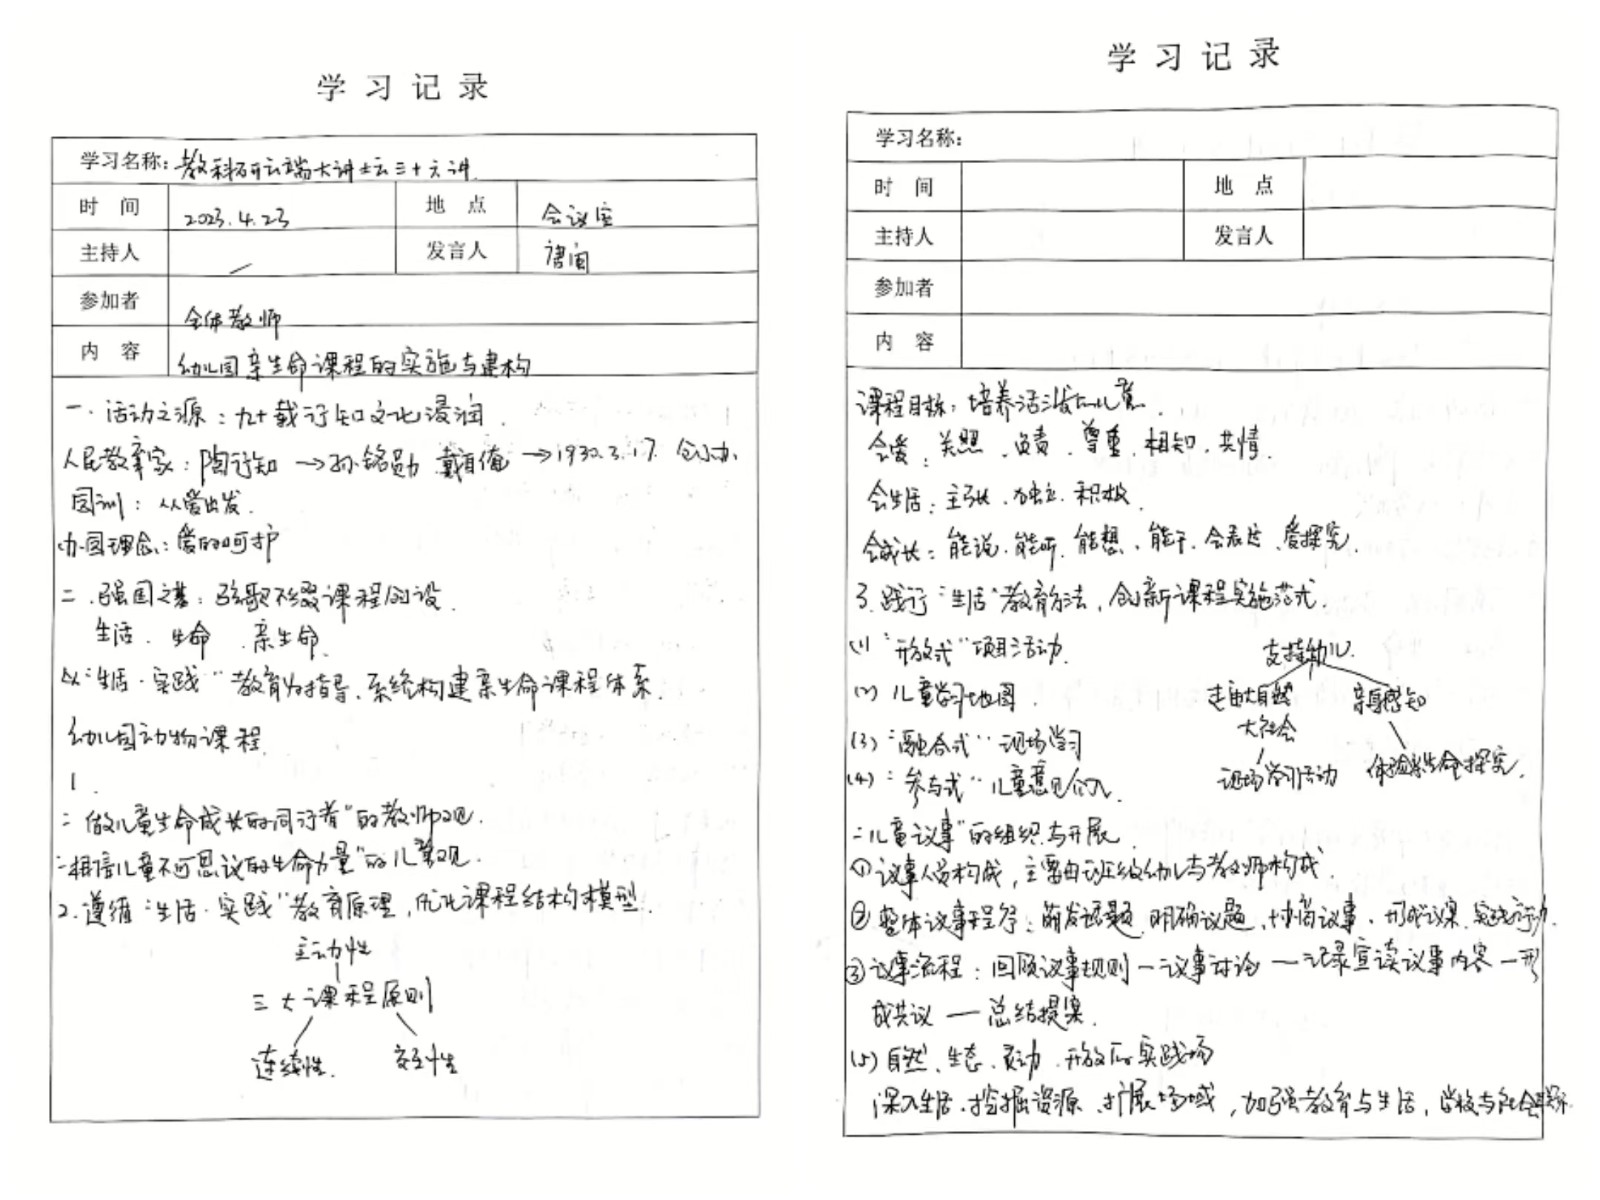 学习记录
学习名称：教科研云端大讲坛三十六讲
时间 2023.4.23 地点 会议室
主持人 / 发言人 唐闻
参加者 全体教师
内容 幼儿园亲生命课程的实施与建构
一.活动之源：九十载行知文化浸润.
人民教育家：陶行知→孙铭勋 戴自俺→1930.3.17 创办.
园训：从爱出发.
办园理念：爱的呵护
二.强园之基：弦歌不缀课程创设.
生活.生命.亲生命.
以"生活·实践"教育为指导、系统构建亲生命课程体系.
幼儿园动物课程.
1.
"做儿童生命成长的同行者"的教师观.
"相信儿童不可思议的生命力量"的儿童观.
2.遵循"生活·实践"教育原理,优化课程结构模型.
主动性
三大课程原则
连续性. 交互性
学习记录
学习名称：
时间 地点
主持人 发言人
参加者
内容
课程目标：培养活泼的儿童.
会爱：关照、负责、尊重、相知、共情.
会生活：主张、独立、积极.
会成长：能说、能听、能想、能干、会表达、爱探究.
3.践行"生活"教育方法,创新课程实施范式.
(1)"开放式"项目活动. 支持幼儿.
(2)儿童学习地图. 走向大自然 亲身感知
大社会
(3)"融合式"现场学习
现场学习活动 体验生命探究.
(4)"参与式"儿童意见介入.
"儿童议事"的组织与开展
①议事人员构成,主要由班级幼儿与教师构成.
②整体议事程序：萌发话题、明确议题、协商议事、形成议案、实践行动.
③议事流程：回顾议事规则—议事讨论—记录宣读议事内容—形
成共议—总结提案.
(5)自然、生态、灵动、开放的实践场
深入生活、挖掘资源、扩展场域,加强教育与生活,学校与社会联系.